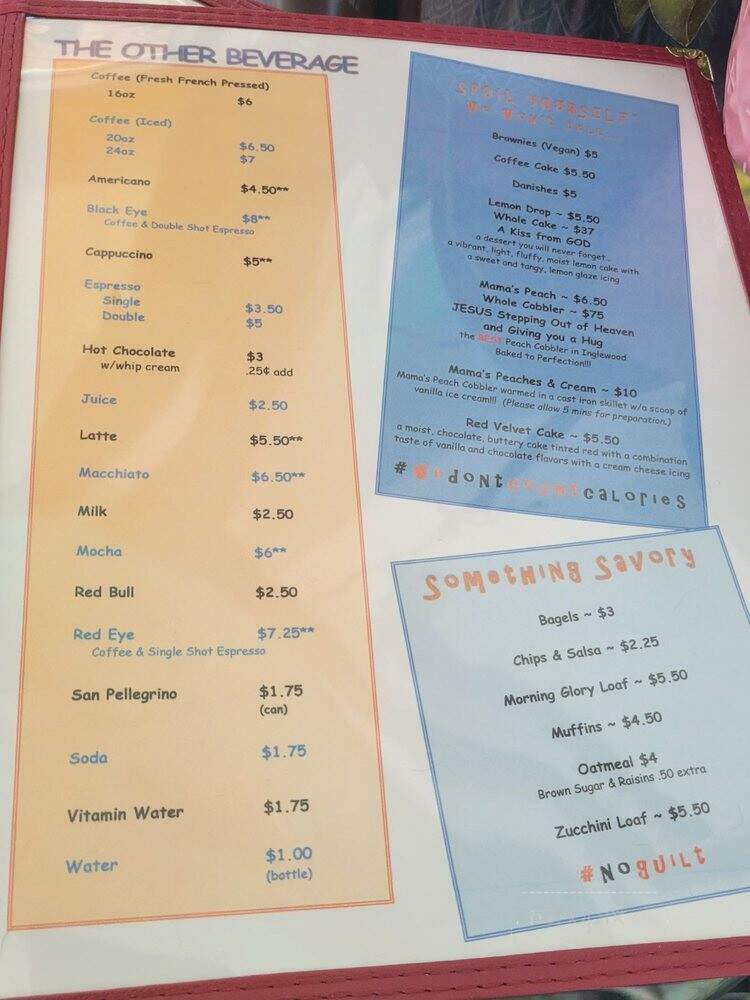 THE OTHER BEVERAGE
Coffee (Fresh French Pressed)
16oz $6
Coffee (Iced)
20oz $6.50
24oz $7
Americano $4.50**
Black Eye $8**
Coffee & Double Shot Espresso
Cappuccino $5**
Espresso
Single $3.50
Double $5
Hot Chocolate $3
w/whip cream .25¢ add
Juice $2.50
Latte $5.50**
Macchiato $6.50**
Milk $2.50
Mocha $6**
Red Bull $2.50
Red Eye $7.25**
Coffee & Single Shot Espresso
San Pellegrino $1.75
(can)
Soda $1.75
Vitamin Water $1.75
Water $1.00
(bottle)
SPOIL YOURSELF
We Won't Tell...
Brownies (Vegan) $5
Coffee Cake $5.50
Danishes $5
Lemon Drop ~ $5.50
Whole Cake ~ $37
A Kiss from GOD
a dessert you will never forget...
a vibrant, light, fluffy, moist lemon cake with
a sweet and tangy, lemon glaze icing
Mama's Peach ~ $6.50
Whole Cobbler ~ $75
JESUS Stepping Out of Heaven
and Giving you a Hug
the BEST Peach Cobbler in Inglewood
Baked to Perfection!!!
Mama's Peaches & Cream ~ $10
Mama's Peach Cobbler warmed in a cast iron skillet w/a scoop of
vanilla ice cream!!! (Please allow 5 mins for preparation.)
Red Velvet Cake ~ $5.50
a moist, chocolate, buttery cake tinted red with a combination
taste of vanilla and chocolate flavors with a cream cheese icing
#WedontCountcalories
Something Savory
Bagels ~ $3
Chips & Salsa ~ $2.25
Morning Glory Loaf ~ $5.50
Muffins ~ $4.50
Oatmeal $4
Brown Sugar & Raisins .50 extra
Zucchini Loaf ~ $5.50
#Noguilt